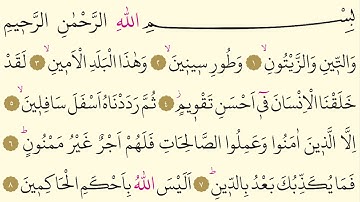 بِسْمِ اللّٰهِ الرَّحْمٰنِ الرَّحٖيمِ
وَالتّٖينِ وَالزَّيْتُونِۙ ﴿١﴾ وَطُورِ سٖينٖينَۙ ﴿٢﴾ وَهٰذَا الْبَلَدِ الْاَمٖينِۙ ﴿٣﴾ لَقَدْ
خَلَقْنَا الْاِنْسَانَ فٖٓي اَحْسَنِ تَقْوٖيمٍؗ ﴿٤﴾ ثُمَّ رَدَدْنَاهُ اَسْفَلَ سَافِلٖينَۙ ﴿٥﴾
اِلَّا الَّذٖينَ اٰمَنُوا وَعَمِلُوا الصَّالِحَاتِ فَلَهُمْ اَجْرٌ غَيْرُ مَمْنُونٍؕ ﴿٦﴾
فَمَا يُكَذِّبُكَ بَعْدُ بِالدّٖينِؕ ﴿٧﴾ اَلَيْسَ اللّٰهُ بِاَحْكَمِ الْحَاكِمٖينَ ﴿٨﴾